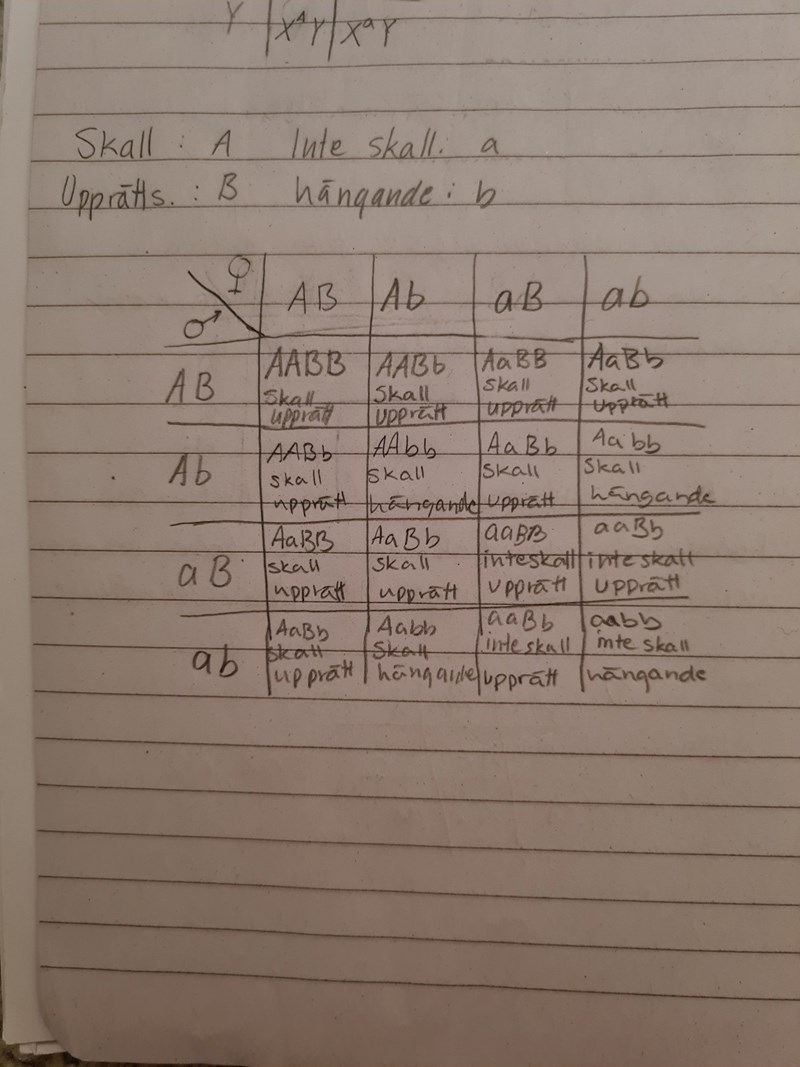 Y XᴬY XᵃY
Skall : A Inte skall: a
Upprätts. : B hängande : b
♀ AB Ab aB ab
♂
AB AABB AABb AaBB AaBb
Skall Skall Skall Skall
upprätt upprätt upprätt upprätt
Ab AABb AAbb AaBb Aabb
skall skall skall skall
upprätt hängande upprätt hängande
aB AaBB AaBb aaBB aaBb
skall skall inte skall inte skall
upprätt upprätt upprätt upprätt
ab AaBb Aabb aaBb aabb
skall skall inte skall inte skall
upprätt hängande upprätt hängande